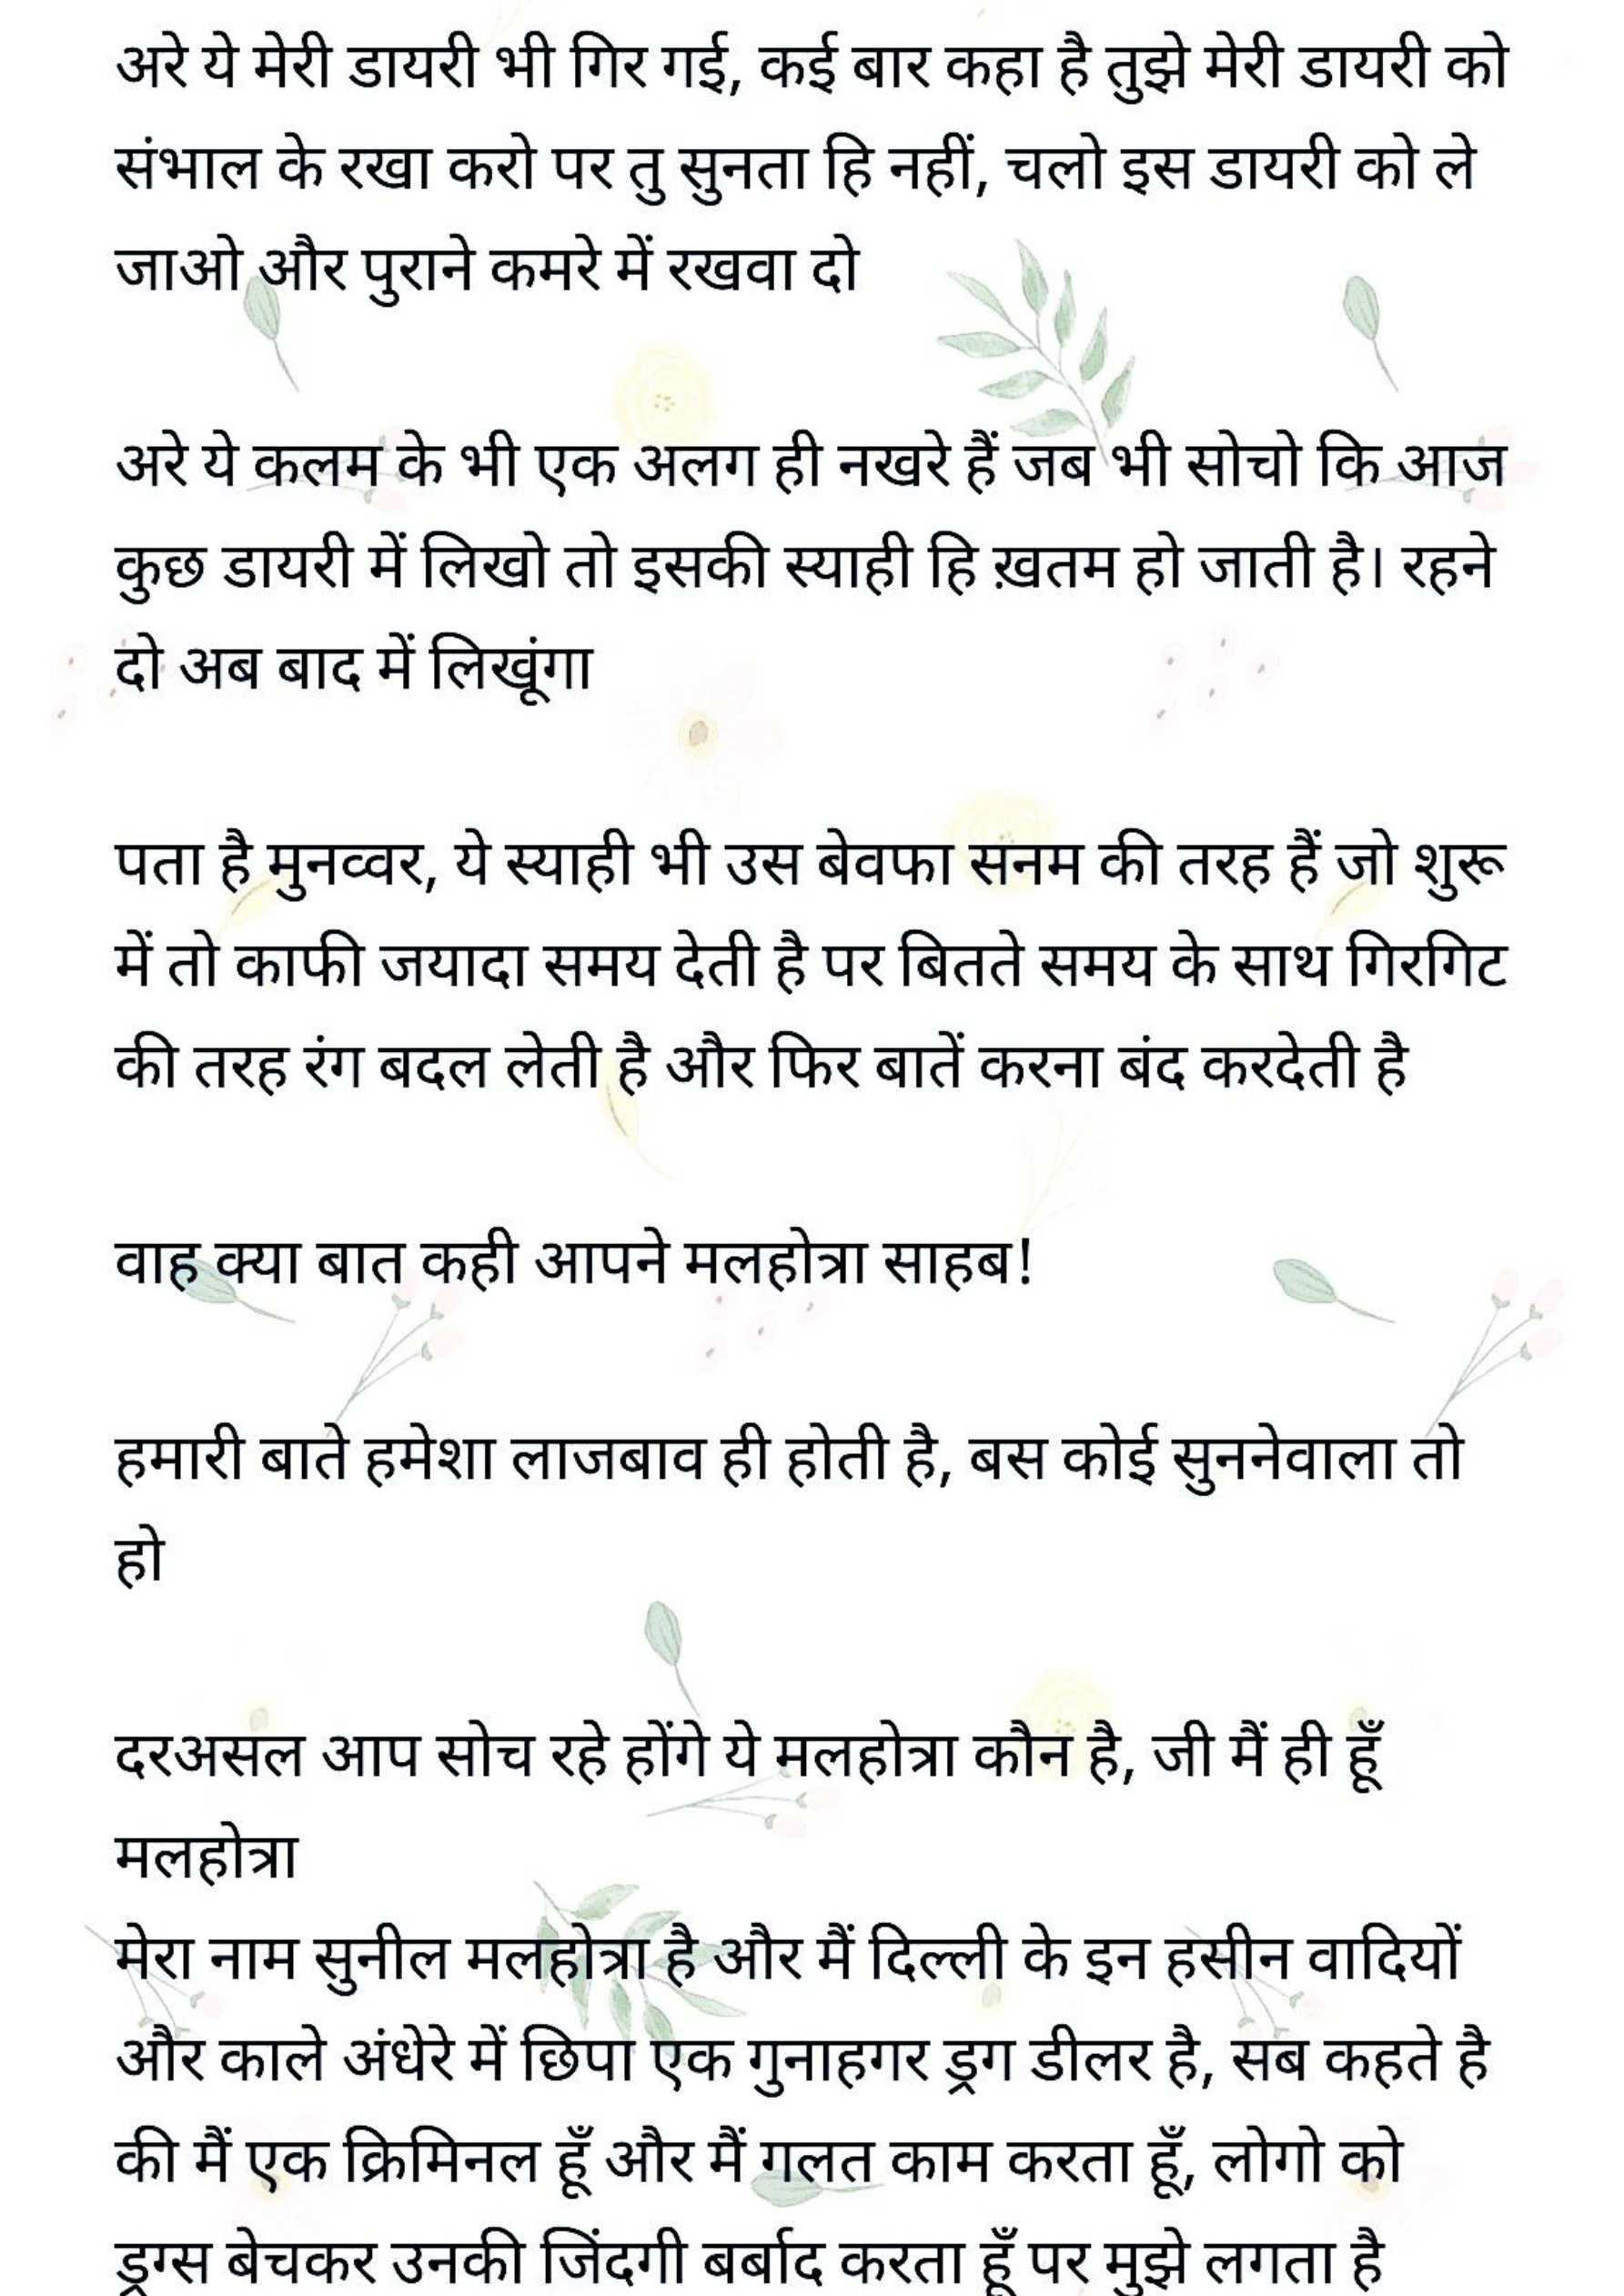 अरे ये मेरी डायरी भी गिर गई, कई बार कहा है तुझे मेरी डायरी को
संभाल के रखा करो पर तु सुनता हि नहीं, चलो इस डायरी को ले
जाओ और पुराने कमरे में रखवा दो
अरे ये कलम के भी एक अलग ही नखरे हैं जब भी सोचो कि आज
कुछ डायरी में लिखो तो इसकी स्याही हि ख़तम हो जाती है। रहने
दो अब बाद में लिखूंगा
पता है मुनव्वर, ये स्याही भी उस बेवफा सनम की तरह हैं जो शुरू
में तो काफी जयादा समय देती है पर बितते समय के साथ गिरगिट
की तरह रंग बदल लेती है और फिर बातें करना बंद करदेती है
वाह क्या बात कही आपने मलहोत्रा साहब!
हमारी बाते हमेशा लाजबाव ही होती है, बस कोई सुननेवाला तो
हो
दरअसल आप सोच रहे होंगे ये मलहोत्रा कौन है, जी मैं ही हूँ
मलहोत्रा
मेरा नाम सुनील मलहोत्रा है और मैं दिल्ली के इन हसीन वादियों
और काले अंधेरे में छिपा एक गुनाहगर ड्रग डीलर है, सब कहते है
की मैं एक क्रिमिनल हूँ और मैं गलत काम करता हूँ, लोगो को
ड्रग्स बेचकर उनकी जिंदगी बर्बाद करता हूँ पर मुझे लगता है